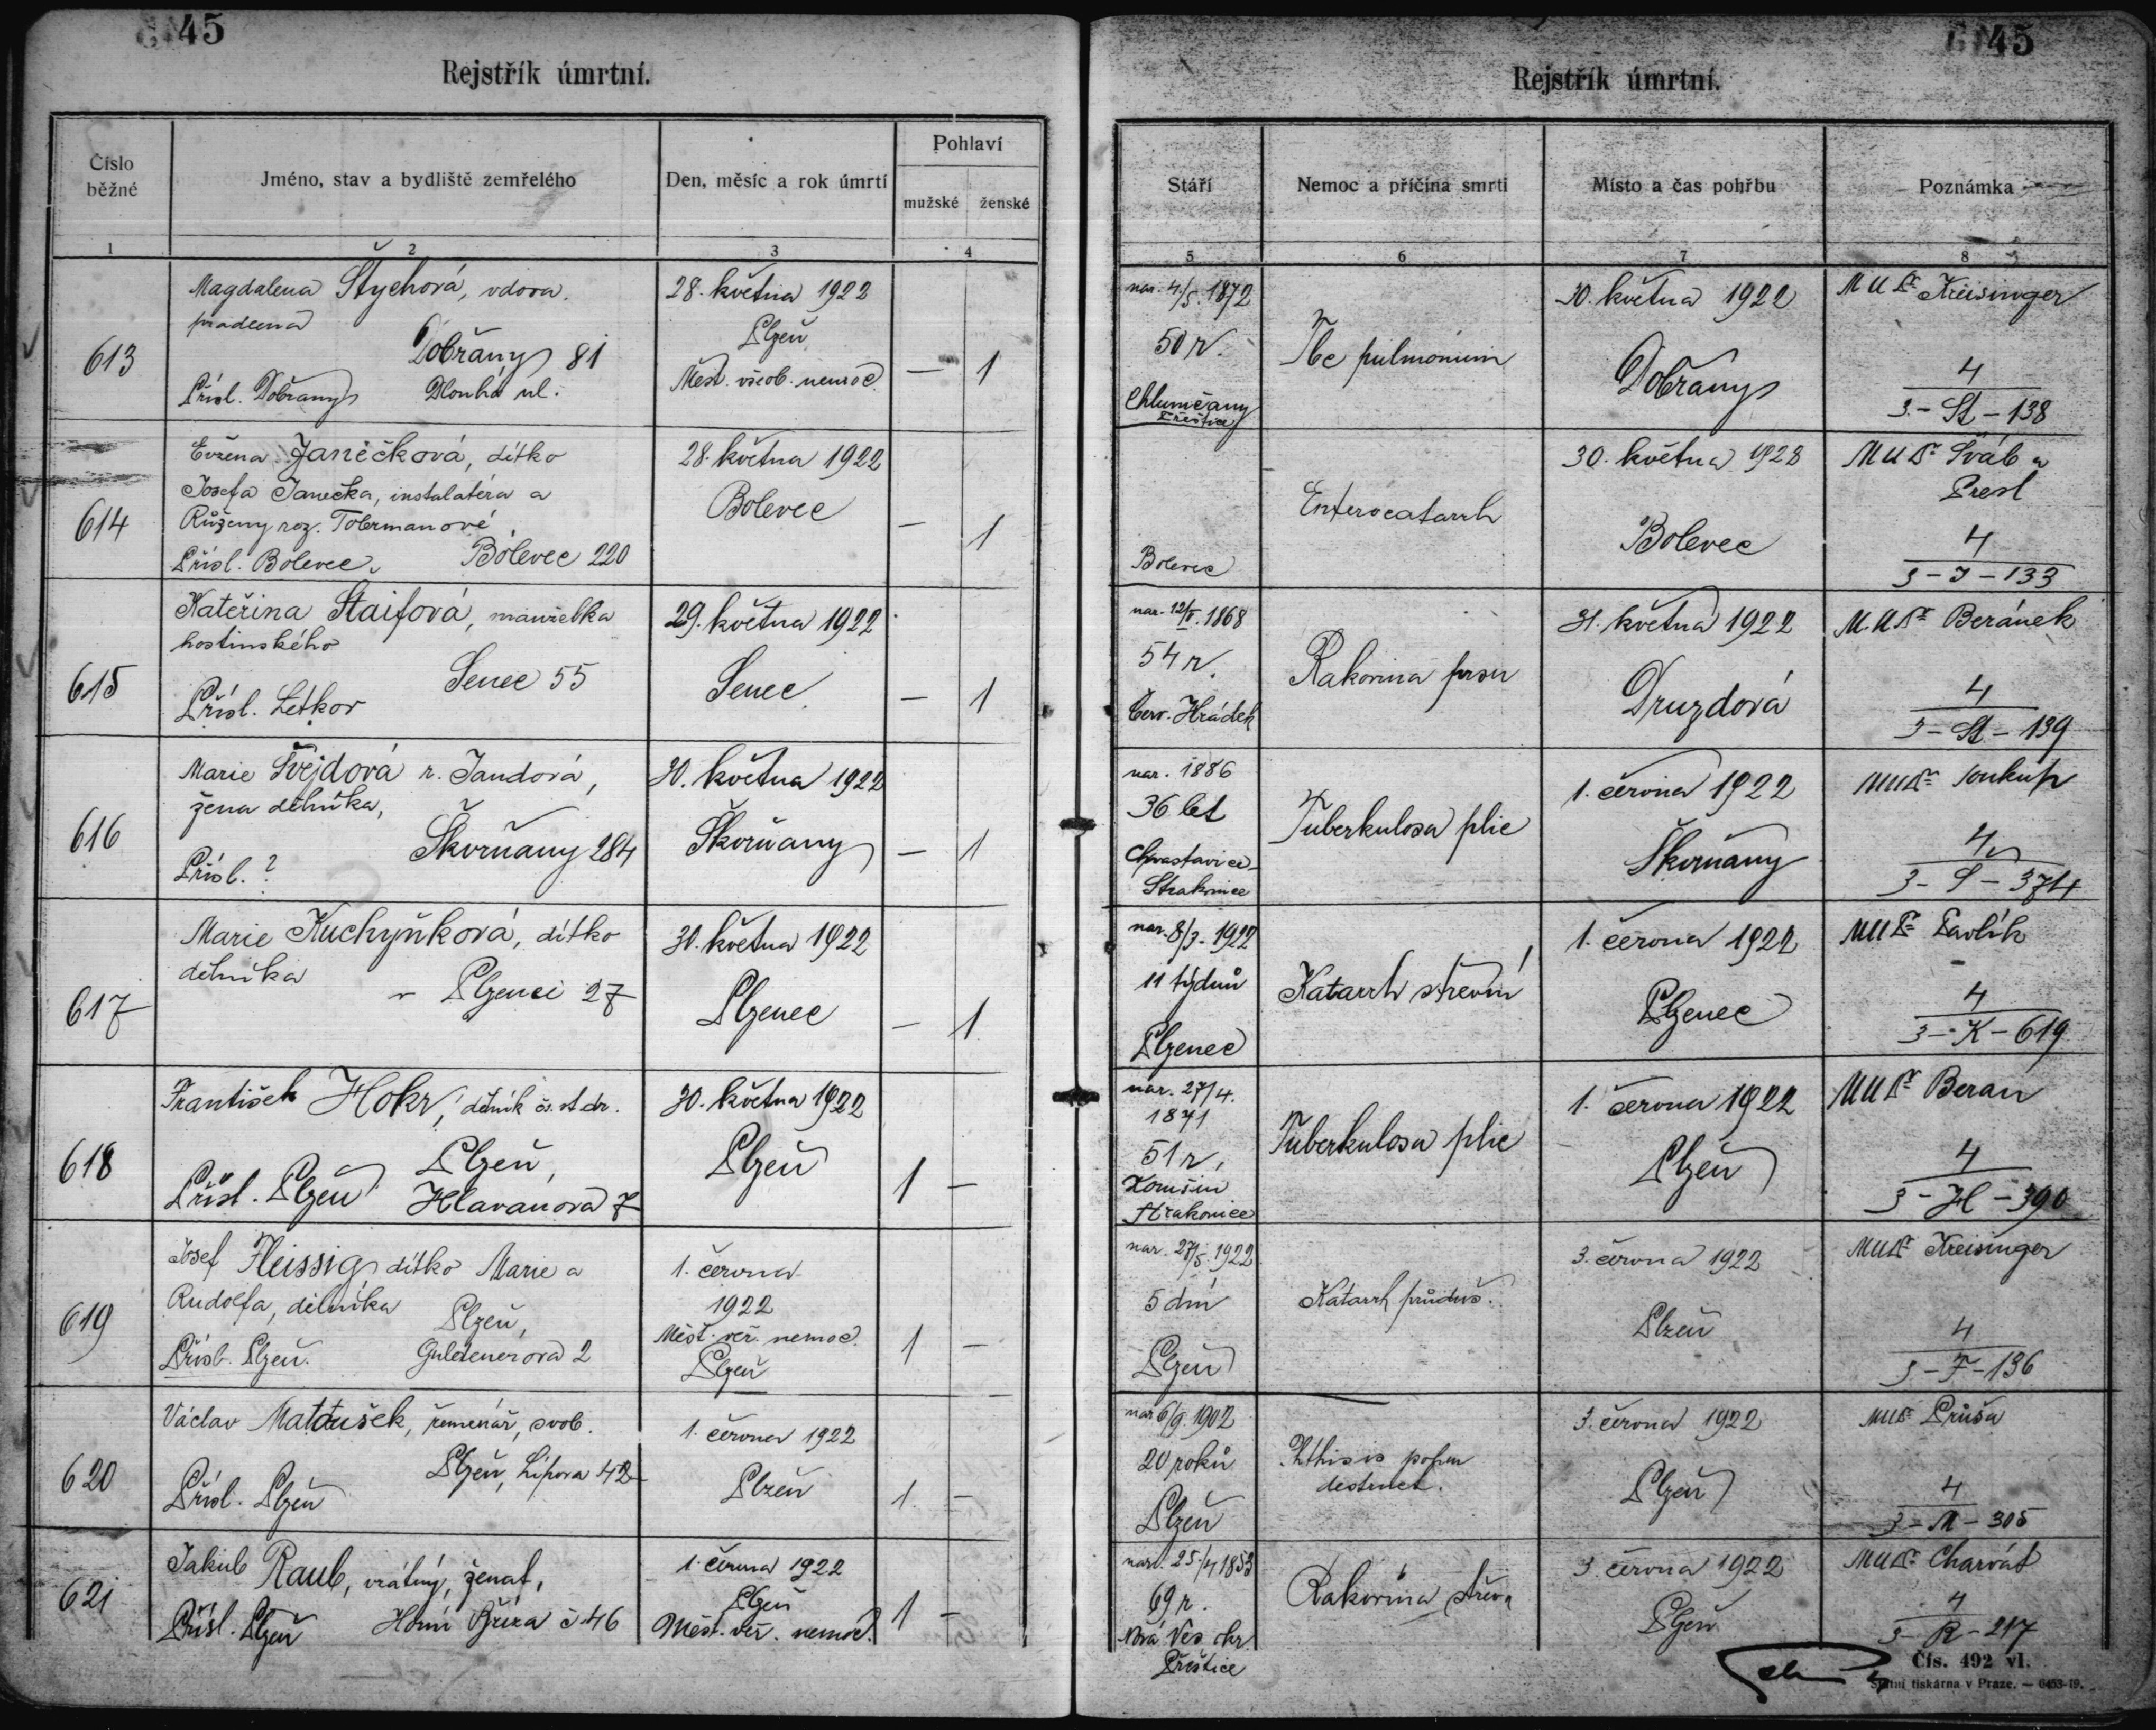 45
Rejstřík úmrtní.
Číslo běžné
Jméno, stav a bydliště zemřelého
Den, měsíc a rok úmrtí
Pohlaví
mužské
ženské
1
2
3
4
613
Magdalena Štychová, vdova.
pradlena
Dobřany 81
Přísl. Dobřany
Dlouhá ul.
28. května 1922
Plzeň
Měst. všeob. nemoc.
—
1
614
Evžena Janečková, dítko
Josefa Janečka, instalatéra a
Růženy roz. Tobermanové
Přísl. Bolevec
Bolevec 220
28. května 1922
Bolevec
—
1
615
Kateřina Staifová, manželka
hostinského
Senec 55
Přísl. Letkov
29. května 1922
Senec
—
1
616
Marie Švejdová r. Jandová,
žena dělníka,
Škvrňany 284
Přísl. ?
30. května 1922
Škvrňany
—
1
617
Marie Kuchyňková, dítko
dělníka
v Plzenci 27
30. května 1922
Plzenec
—
1
618
František Hokr, dělník čs. st. dr.
Plzeň,
Přísl. Plzeň
Hlavanova 7
30. května 1922
Plzeň
1
—
619
Josef Fleissig, dítko Marie a
Rudolfa, dělníka
Plzeň,
Přísl. Plzeň.
Guldenerova 2
1. června
1922
Měst. veř. nemoc.
Plzeň
1
—
620
Václav Matoušek, řemenář, svob.
Plzeň, Lipova 42
Přísl. Plzeň
1. června 1922
Plzeň
1.
—
621
Jakub Raub, vrátný, ženat,
Přísl. Plzeň
Horní Bříza č 46
1. června 1922
Plzeň
Měst. veř. nemoc.
1
—
45
Rejstřík úmrtní.
Stáří
Nemoc a příčina smrti
Místo a čas pohřbu
Poznámka
5
6
7
8
nar. 4/5. 1872
50 r.
Chlumčany
Přeštice
Tbc pulmonum
30. května 1922
Dobřany
MUDr Kreisinger
4
3 - St - 138
Bolevec
Enterocatarrh
30. května 1928
Bolevec
MUDr Šváb a
Presl
4
3 - J - 133
nar. 12/5. 1868
54 r.
Červ. Hrádek
Rakovina prsu
31. května 1922
Druzdová
MUDr Beránek
4
3 - St - 139
nar. 1886
36 let
Strakonice
Tuberkulosa plic
1. června 1922
Škvrňany
MUDr Soukup
4
3 - S - 374
nar. 8/3. 1922
11 týdnů
Plzenec
Katarrh střevní
1. června 1922
Plzenec
MUDr Pavlík
4
3 - K - 619
nar. 27/4.
1871
51 r.
Strakonice
Tuberkulosa plic
1. června 1922
Plzeň
MUDr Beran
4
3 - H - 390
nar. 27/5. 1922
5 dní
Plzeň
Katarrh průduš.
3. června 1922
Plzeň
MUDr Kreisinger
4
3 - F - 136
nar 6/9. 1902
20 roků
Plzeň
Phthisis
destruct.
3. června 1922
Plzeň
MUDr Průša
4
3 - M - 305
nar. 25./4 1853
69 r.
Nová Ves okr
Přeštice
Rakovina střeva
3. června 1922
Plzeň
MUDr Charvát
4
3 - R - 217
Čís. 492 vl.
Státní tiskárna v Praze. — 6453-19.